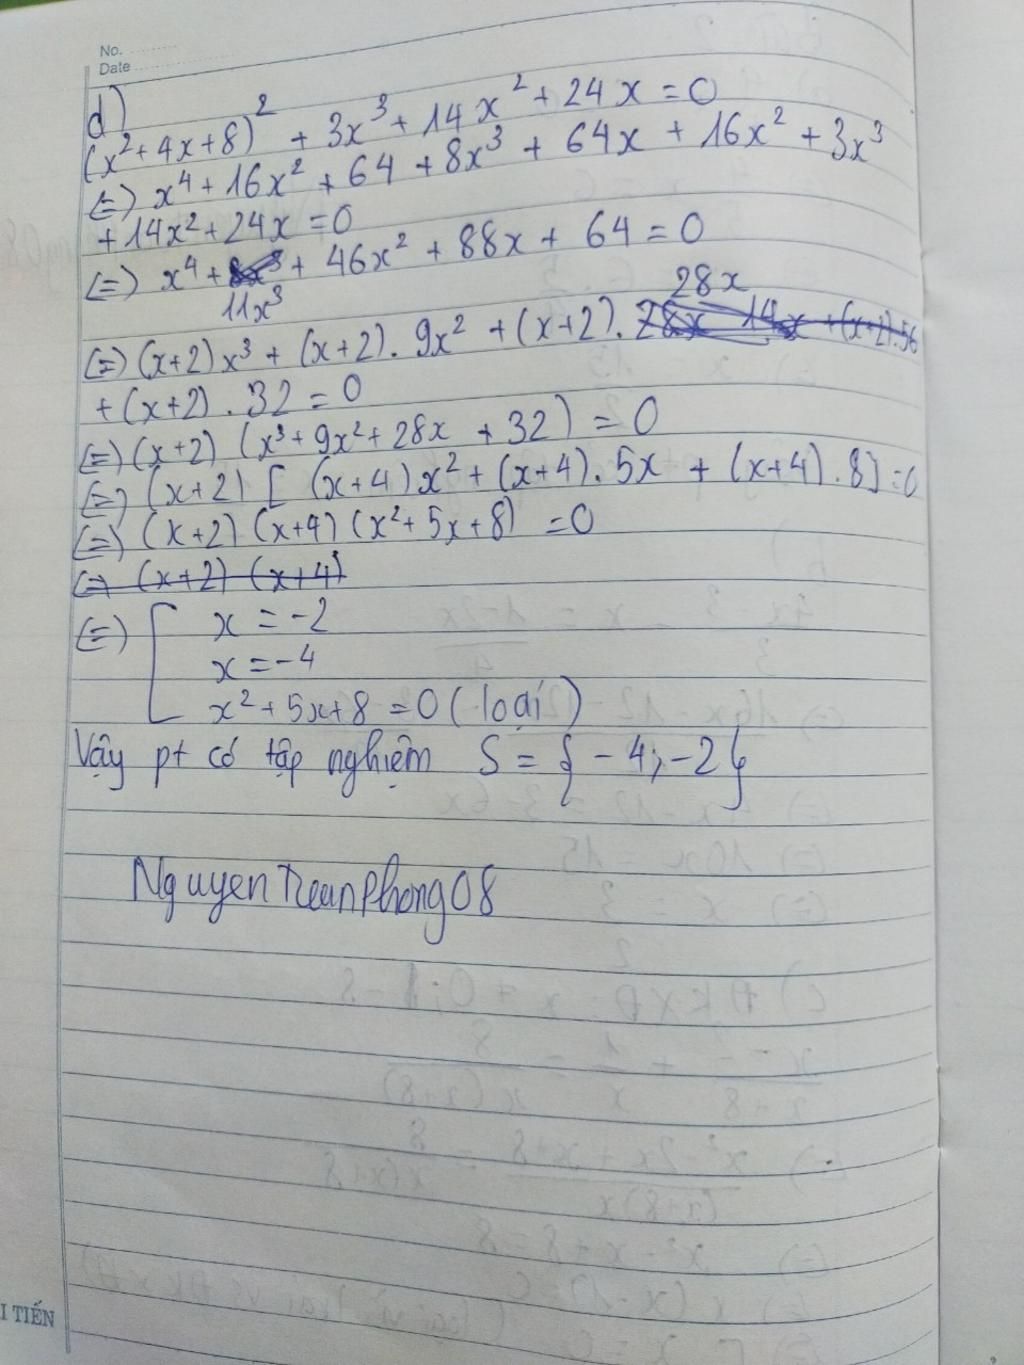 No.
Date
d)
(x²+4x+8)² + 3x³ + 14x² + 24x = 0
(=) x⁴ + 16x² + 64 + 8x³ + 64x + 16x² + 3x³
+ 14x² + 24x = 0
(=) x⁴ + 8x³ + 46x² + 88x + 64 = 0
11x³
28x
(=) (x+2) x³ + (x+2). 9x² + (x+2). 28x 14x + (x+2).56
+ (x+2) . 32 = 0
(=) (x+2) (x³ + 9x² + 28x + 32) = 0
(=) (x+2) [ (x+4) x² + (x+4). 5x + (x+4) . 8] = 0
(=) (x+2) (x+4) (x² + 5x + 8) = 0
(=) (x+2) (x+4)
(=) [ x = -2
x = -4
x² + 5x + 8 = 0 ( loại )
Vậy pt có tập nghiệm S = { - 4; -2 }
NguyenTranPhong08
I TIẾN